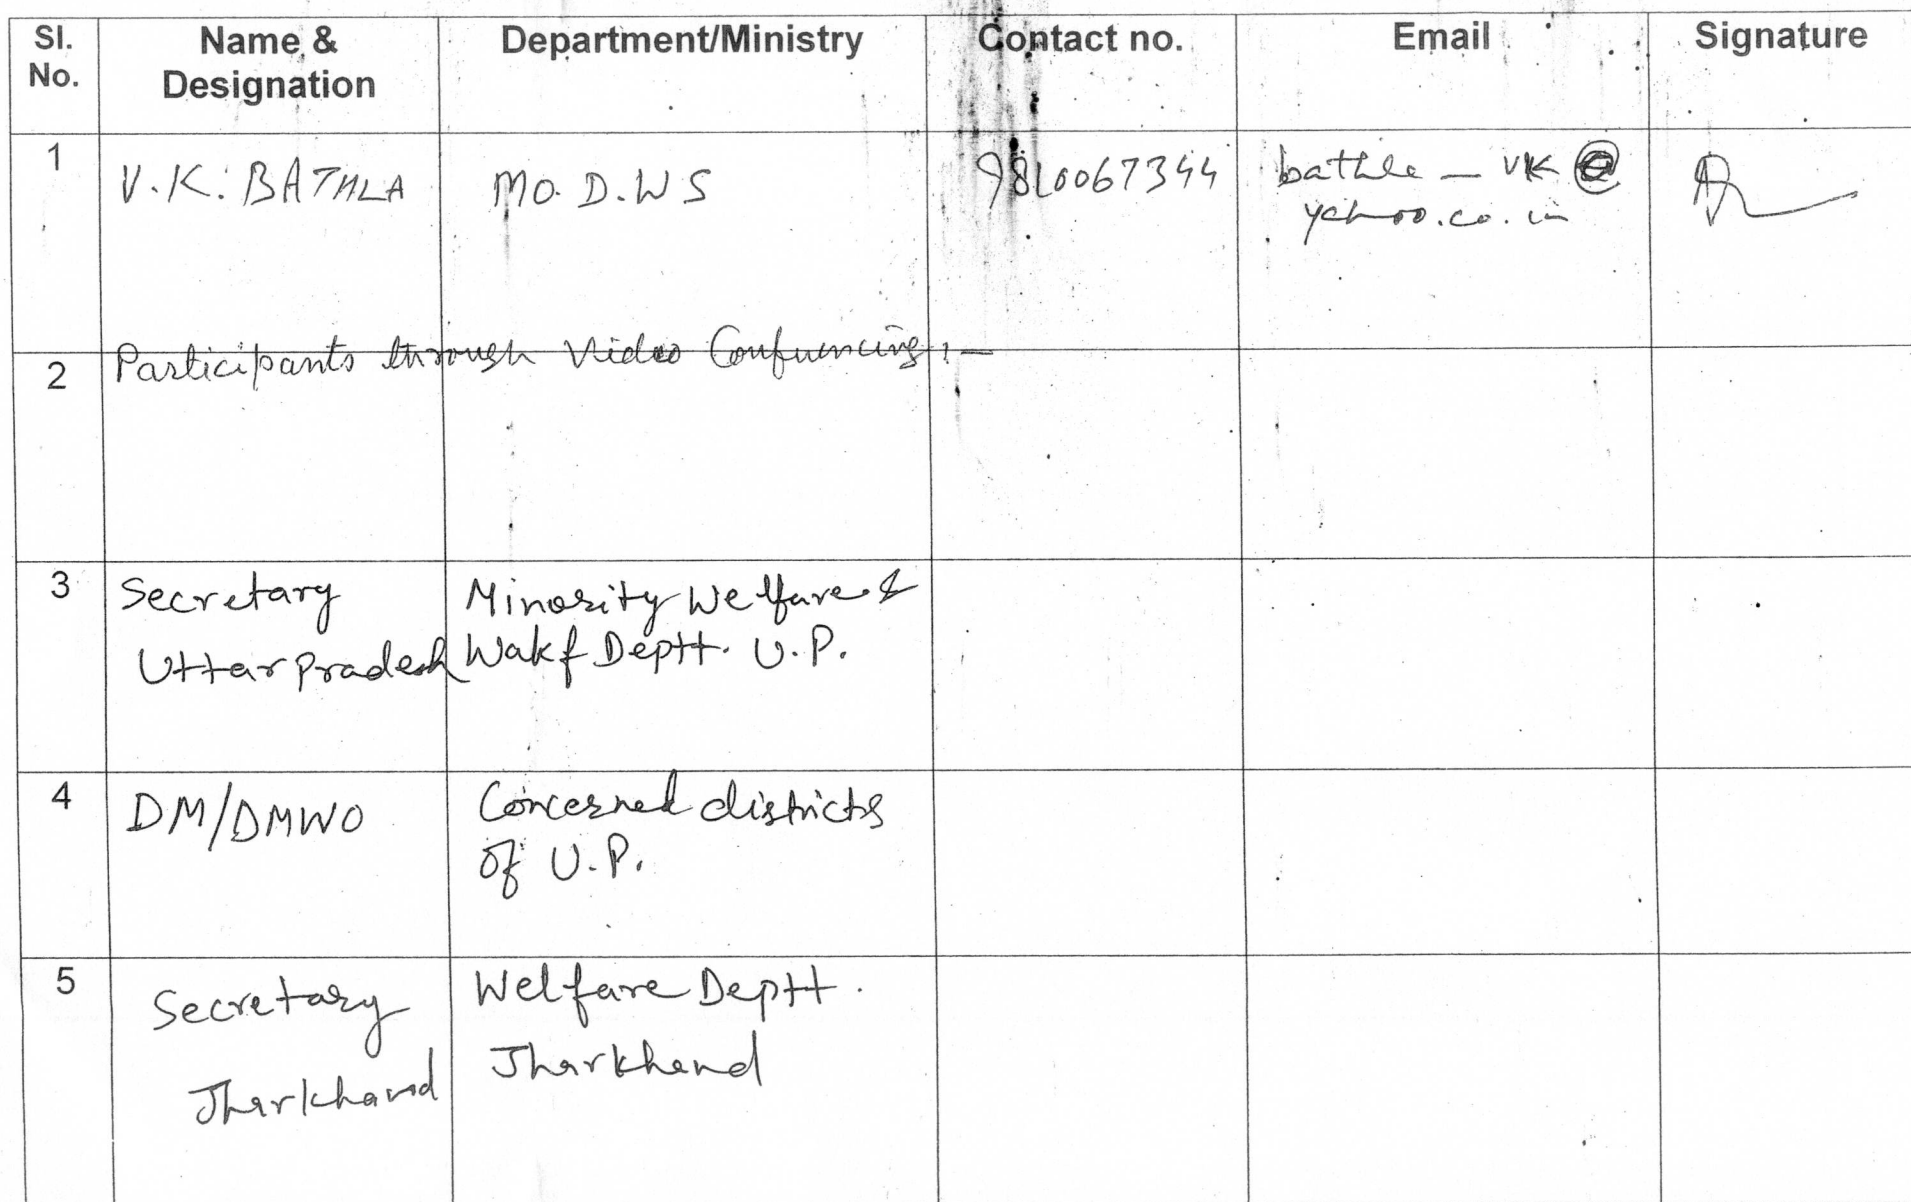 Sl. No. Name & Designation Department/Ministry Contact no. Email Signature
1 V.K. BATHLA MO. D.WS 9810067344 bathla _ vk @
yahoo.co.in
Participants through Video Conferencing :-
2
3 Secretary Minority Welfare &
Uttar pradesh Wakf Deptt. U.P.
4 DM/DMWO Concerned districts
of U.P.
5 Secretary Welfare Deptt.
Jharkhand Jharkhand